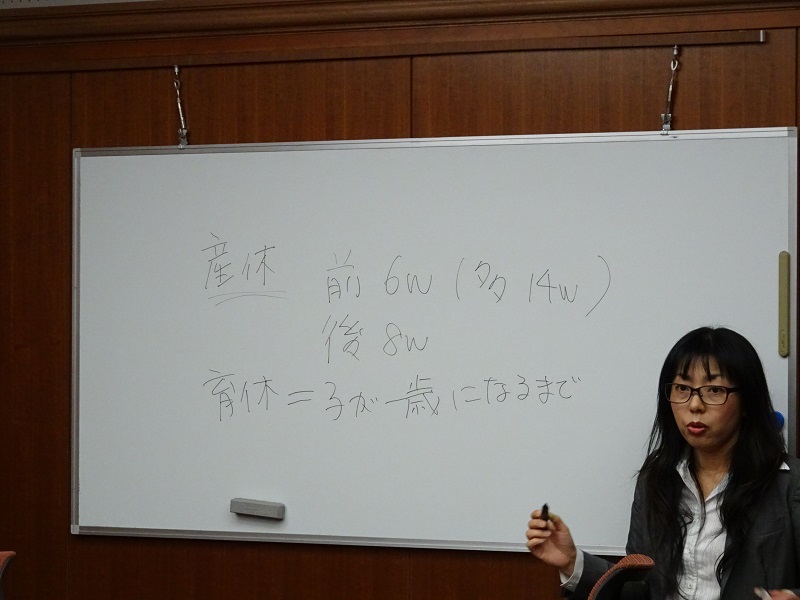 産休 前 6w (多 14w)
後 8w
育休=子が一歳になるまで